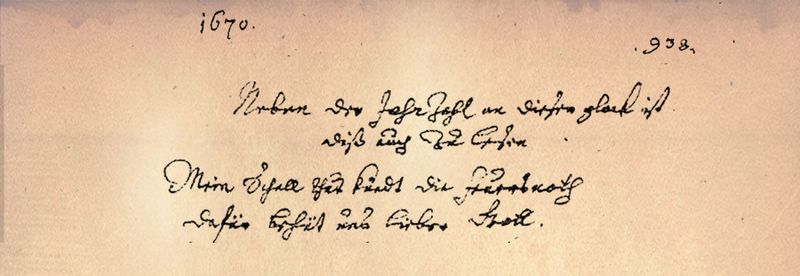 1670.
938.
Neben der JahrZahl an dieser glock ist
diß auch Zu lesen
Mein Schall thut kundt die feuersnoth
dafür behüt uns lieber Gott.